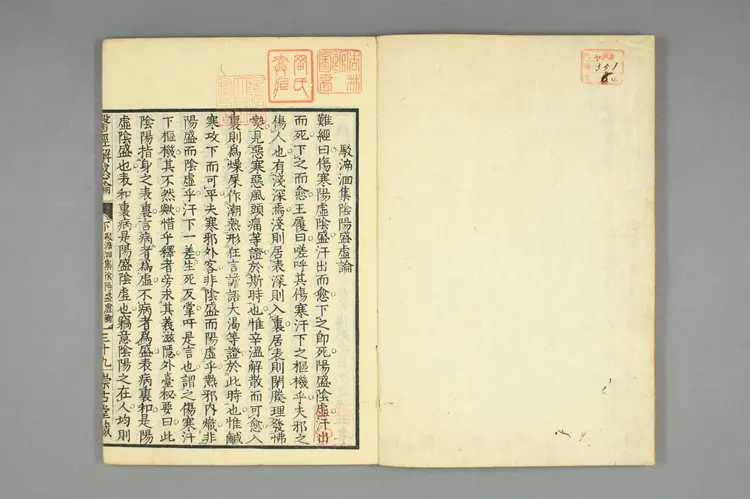 駁溯洄集陰陽盛虛論
難經曰傷寒陽虛陰盛汗出而愈下之即死陽盛陰虛汗出
而死下之而愈王履曰嗟呼其傷寒汗下之樞機乎夫邪之
傷人也有淺深焉淺則居表深則入裏居表則閉腠理發怫
熱見惡寒惡風頭痛等證於斯時也惟辛溫解散而可愈入
裏則爲燥屎作潮熱形狂言譫語大渴等證於此時也惟鹹
寒攻下而可平夫寒邪外客非陰盛而陽虛乎熱邪內熾非
陽盛而陰虛乎汗下一差生死反掌吁是言也謂之傷寒汗
下樞機其不然歟惜乎釋者旁求其義滋隱外臺秘要曰此
陰陽指身之表裏言病者爲虛不病者爲盛表病裏和是陽
虛陰盛也表和裏病是陽盛陰虛也竊意陰陽之在人均則
醫經解惑論 下 駁溯洄集陰陽盛虛論 三十九 崇古堂藏